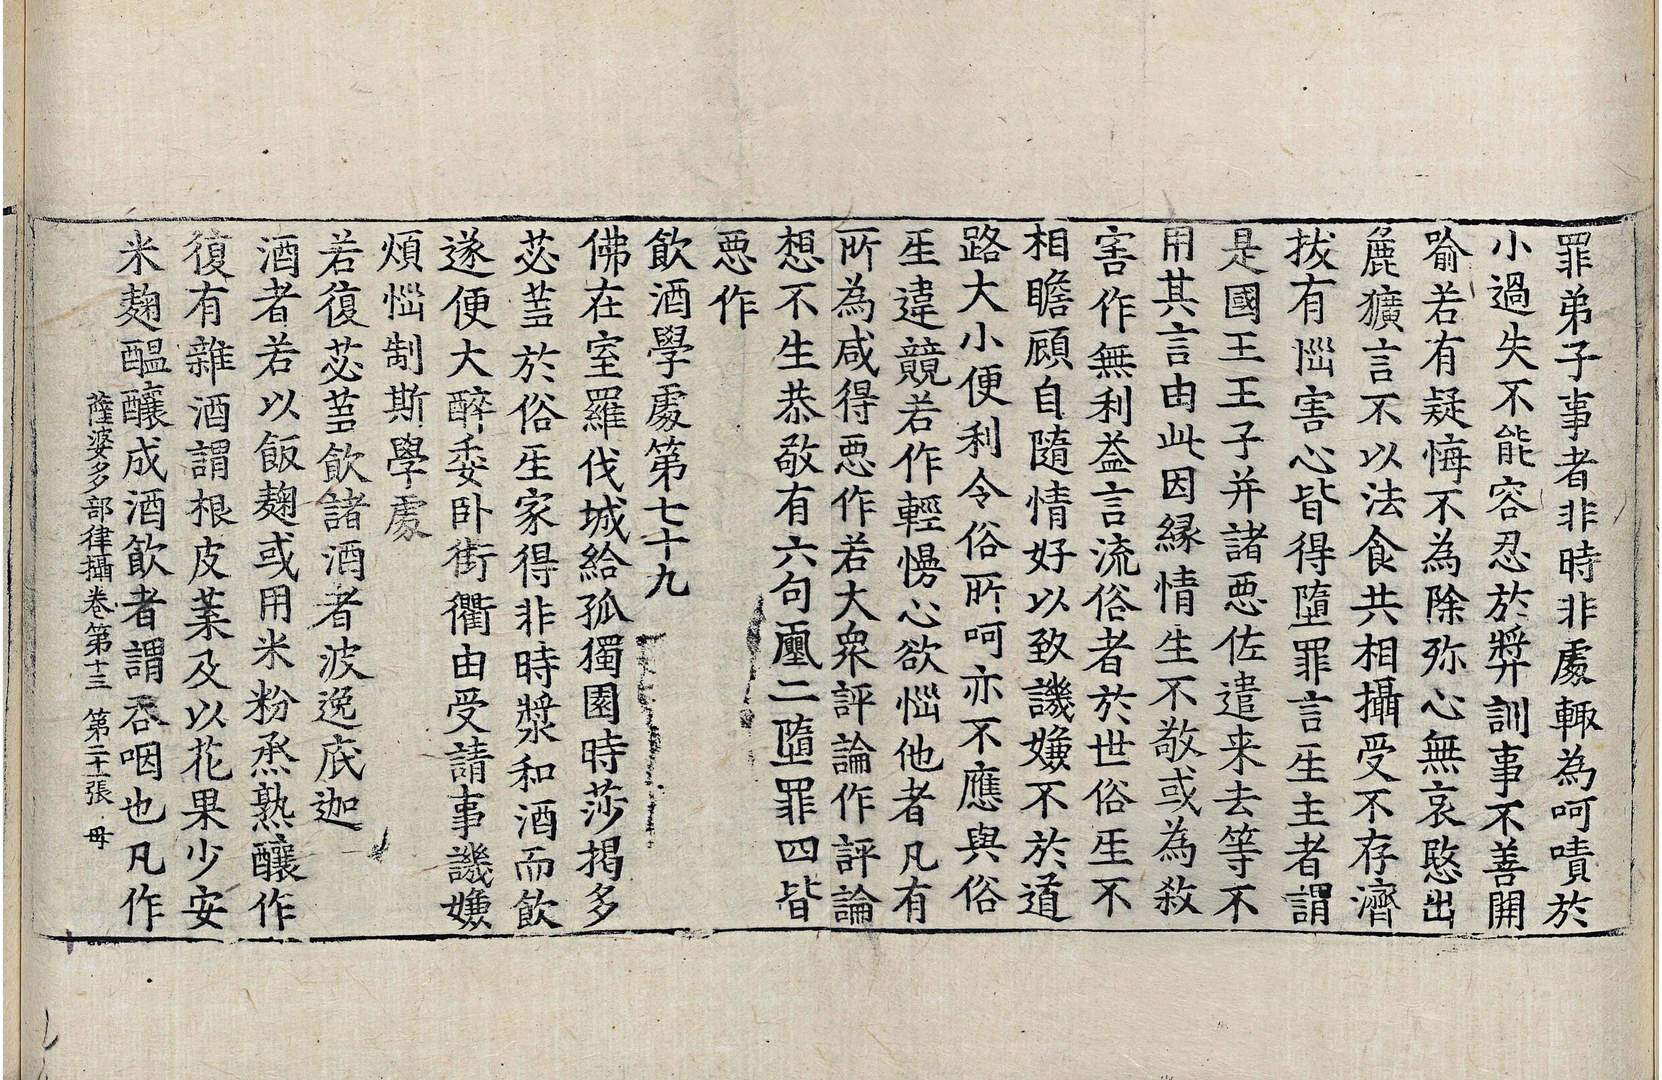 罪弟子事者非時非處輙為呵嘖於
小過失不能容忍於弊訓事不善開
喻若有疑悔不為除殄心無哀愍出
麁獷言不以法食共相攝受不存濟
拔有惱害心皆得墮罪言生主者謂
是國王王子并諸惡佐遣来去等不
用其言由此因緣情生不敬或為殺
害作無利益言流俗者於世俗生不
相瞻顧自隨情好以致譏嫌不於道
路大小便利令俗所呵亦不應與俗
生違競若作輕慢心欲惱他者凡有
所為咸得惡作若大衆評論作評論
想不生恭敬有六句罪二墮罪四皆
惡作
飲酒學處第七十九
佛在室羅伐城給孤獨園時莎揭多
苾芻於俗生家得非時漿和酒而飲
遂便大醉委卧街衢由受請事譏嫌
煩惱制斯學處
若復苾芻飲諸酒者波逸底迦
酒者若以飯麴或用米粉烝熟釀作
復有雜酒謂根皮葉及以花果少安
米麴醖釀成酒飲者謂吞咽也凡作
薩婆多部律攝卷第十三　第二十張　毋